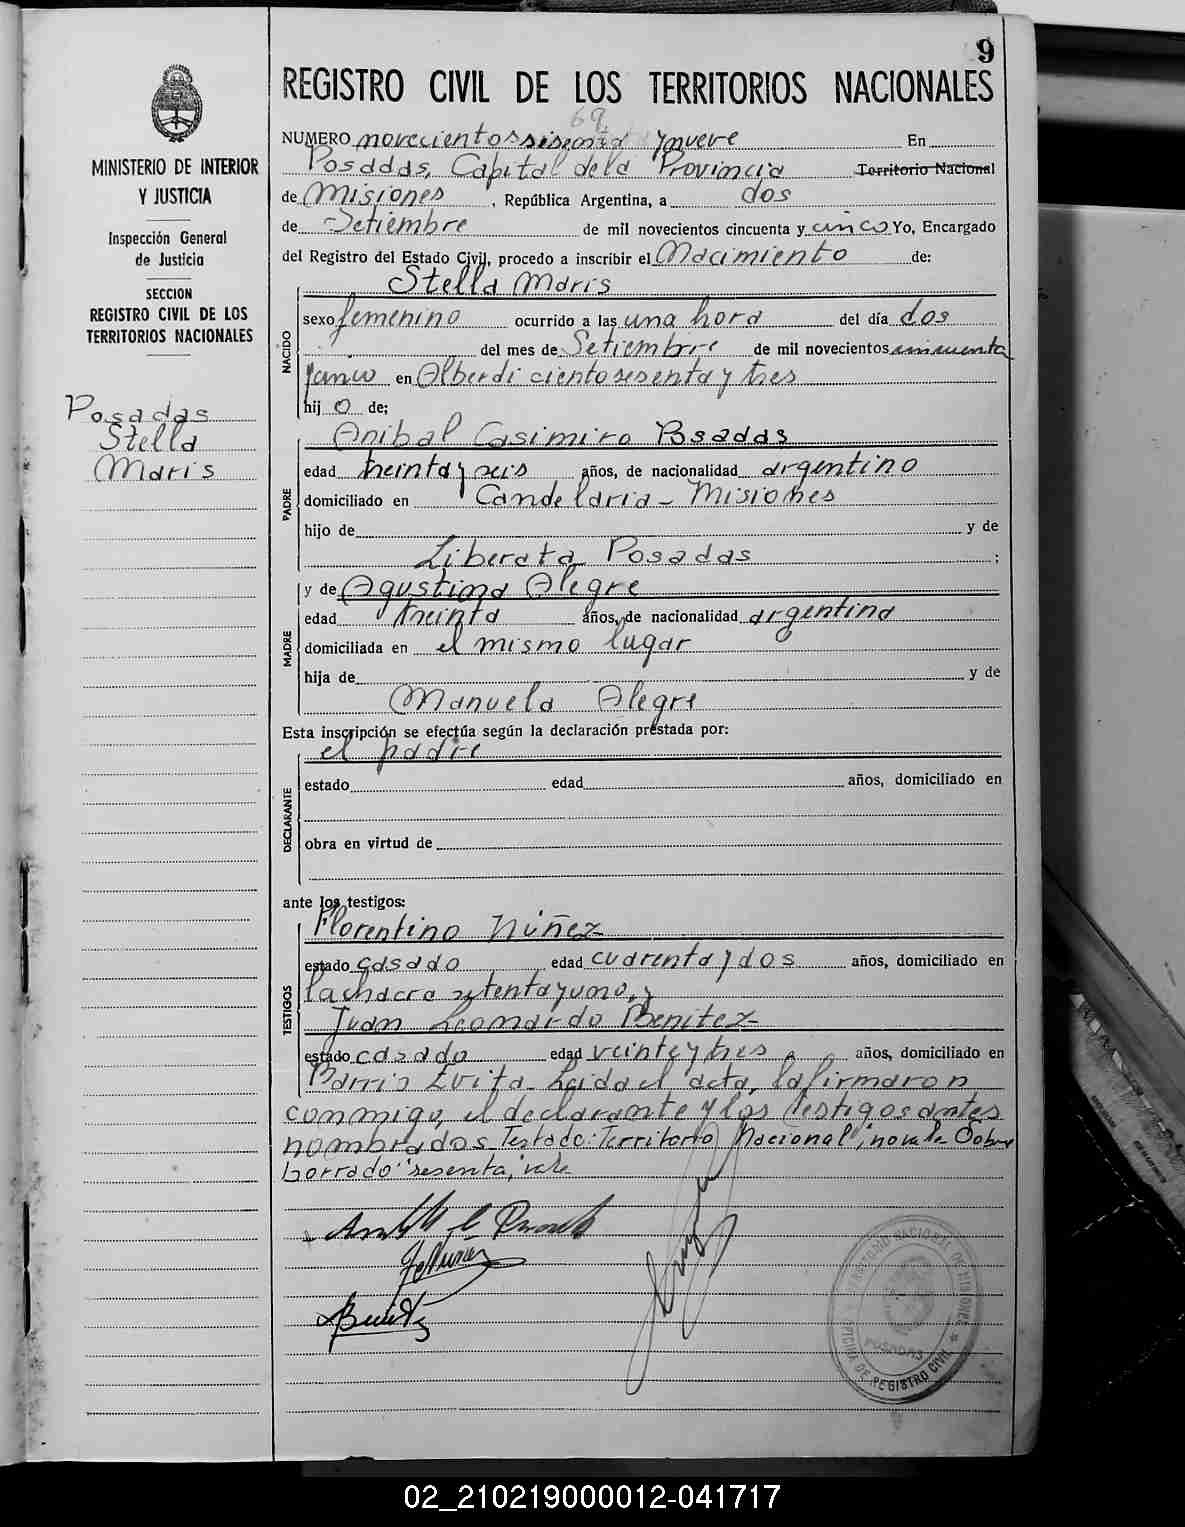 9
REGISTRO CIVIL DE LOS TERRITORIOS NACIONALES
69
NUMERO novecientos sesenta y nueve En
Posadas, Capital de la Provincia Territorio Nacional
de Misiones, República Argentina, a dos
de Setiembre de mil novecientos cincuenta y cinco Yo, Encargado
del Registro del Estado Civil, procedo a inscribir el Nacimiento de:
NACIDO
Stella Maris
sexo femenino ocurrido a las una hora del día dos
del mes de Setiembre de mil novecientos cincuenta
y cinco en Alberdi ciento sesenta y tres
hij a de;
PADRE
Anibal Casimiro Posadas
edad treinta y seis años, de nacionalidad argentino
domiciliado en Candelaria - Misiones
hijo de y de
Liberata Posadas ;
y de Agustina Alegre
MADRE
edad treinta años, de nacionalidad argentina
domiciliada en el mismo lugar
hija de y de
Manuela Alegre
Esta inscripción se efectúa según la declaración prestada por:
DECLARANTE
el padre
estado edad años, domiciliado en
obra en virtud de
ante los testigos:
TESTIGOS
Florentino Núñez
estado casado edad cuarenta y dos años, domiciliado en
la chacra setenta y uno, y
Juan Leonardo Benitez
estado casado edad veinte y tres años, domiciliado en
Barrio Evita - Leida el acta, la firmaron
conmigo, el declarante y los testigos antes
nombrados. Testado: Territorio Nacional", no vale. Sobre
borrado "sesenta", vale
MINISTERIO DE INTERIOR
Y JUSTICIA
Inspección General
de Justicia
SECCION
REGISTRO CIVIL DE LOS
TERRITORIOS NACIONALES
Posadas
Stella
Maris
TERRITORIO NACIONAL DE MISIONES
POSADAS
OFICINA DE REGISTRO CIVIL
02_210219000012-041717